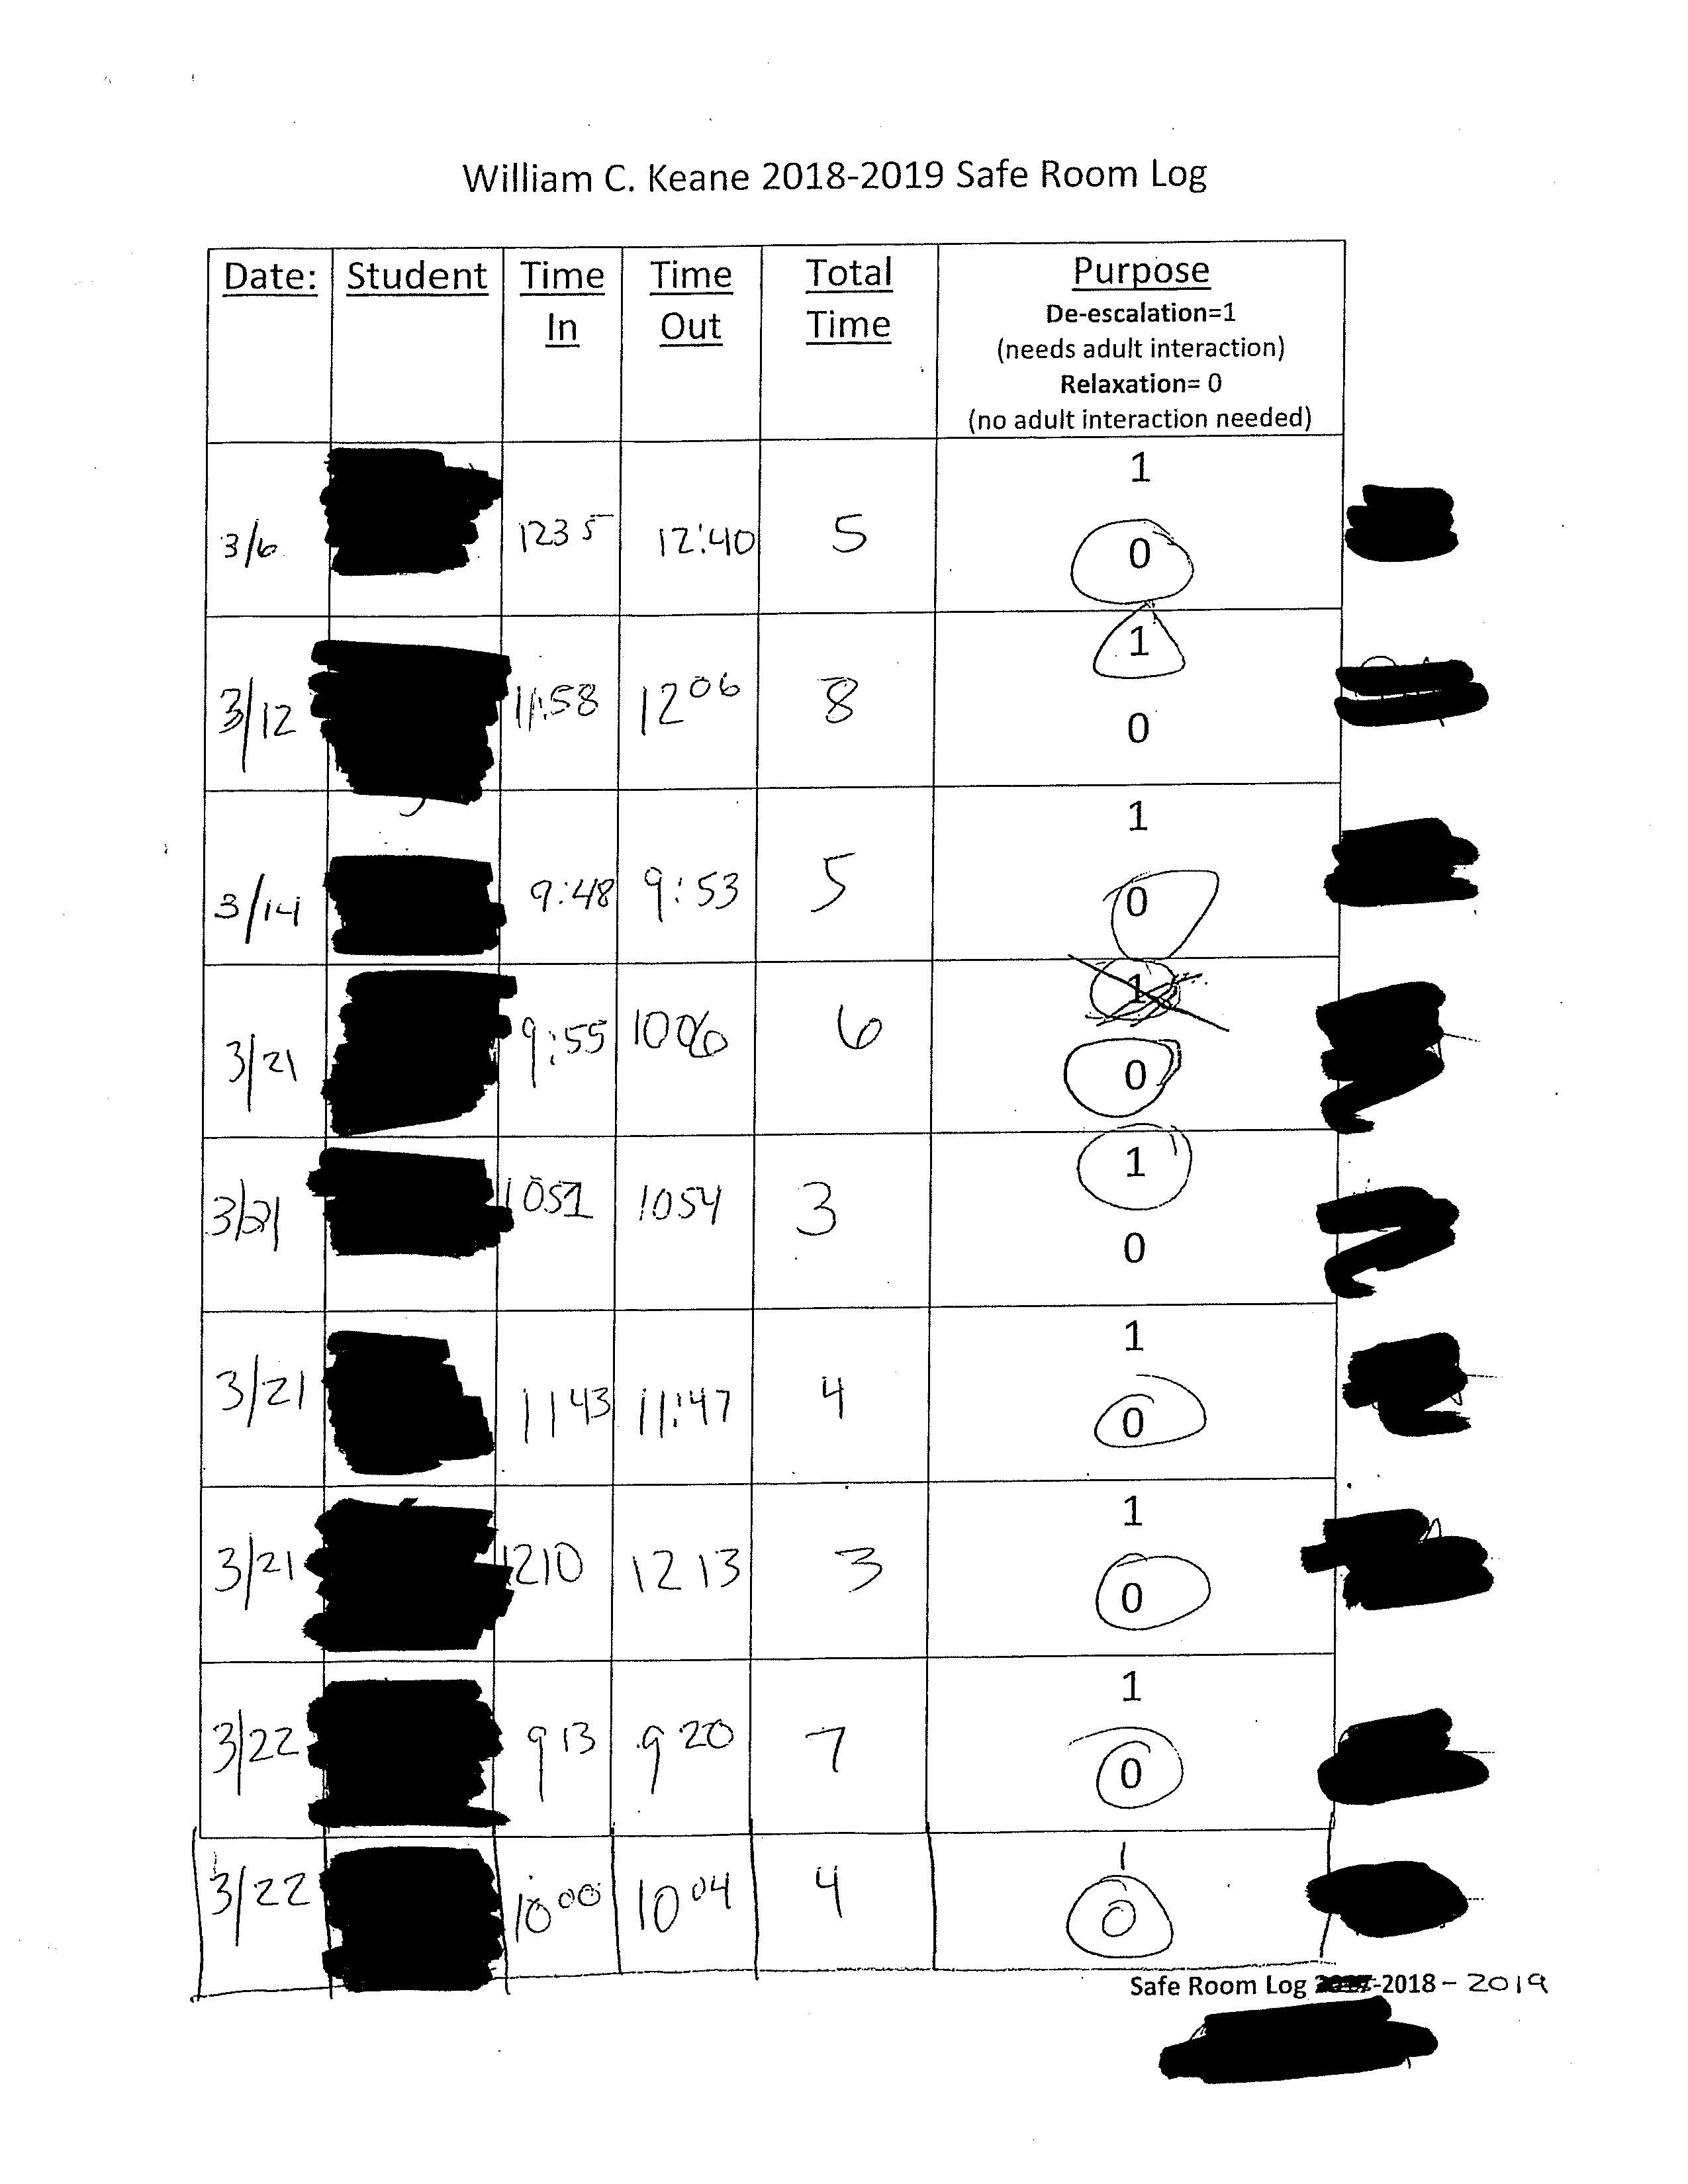 William C. Keane 2018-2019 Safe Room Log
Date: Student Time In Time Out Total Time Purpose
De-escalation=1
(needs adult interaction)
Relaxation= 0
(no adult interaction needed)
1
3/6 1235 12:40 5 0
1
3/12 11:58 12 06 8
0
1
3/14 9:48 9:53 5 0
1
3/21 9:55 1006 6
0
1
3/21 1051 1054 3
0
1
3/21 1143 11:47 4 0
1
3/21 1210 12 13 3 0
1
3/22 9 13 9 20 7
0
1
3/22 10 00 10 04 4
0
Safe Room Log 2017-2018 - 2019